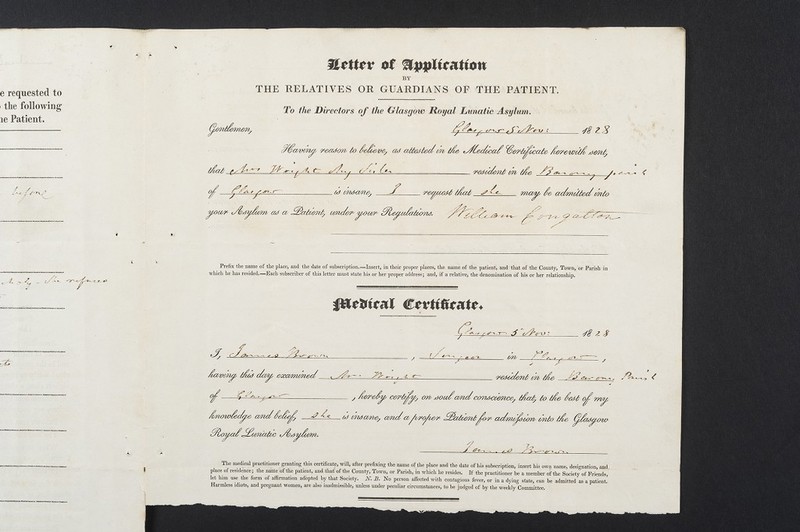 e requested to
the following
he Patient.
before
refused
Letter of Application
BY
THE RELATIVES OR GUARDIANS OF THE PATIENT.
To the Directors of the Glasgow Royal Lunatic Asylum.
Gentlemen,
Glasgow 5 Novr 1828
Having reason to believe, as attested in the Medical Certificate herewith sent,
that Mrs Wright My Sister resident in the Barony parish
of Glasgow is insane, I request that she may be admitted into
your Asylum as a Patient, under your Regulations. William Congalton
Prefix the name of the place, and the date of subscription.—Insert, in their proper places, the name of the patient, and that of the County, Town, or Parish in
which he has resided.—Each subscriber of this letter must state his or her proper address; and, if a relative, the denomination of his or her relationship.
Medical Certificate.
Glasgow 5 Novr 1828
I, James Brown, Surgeon in Glasgow,
having this day examined Mrs Wright resident in the Barony Parish
of Glasgow, hereby certify, on soul and conscience, that, to the best of my
knowledge and belief, She is insane, and a proper Patient for admission into the Glasgow
Royal Lunatic Asylum.
James Brown
The medical practitioner granting this certificate, will, after prefixing the name of the place and the date of his subscription, insert his own name, designation, and
place of residence; the name of the patient, and that of the County, Town, or Parish, in which he resides. If the practitioner be a member of the Society of Friends,
let him use the form of affirmation adopted by that Society. N. B. No person affected with contagious fever, or in a dying state, can be admitted as a patient.
Harmless idiots, and pregnant women, are also inadmissible, unless under peculiar circumstances, to be judged of by the weekly Committee.